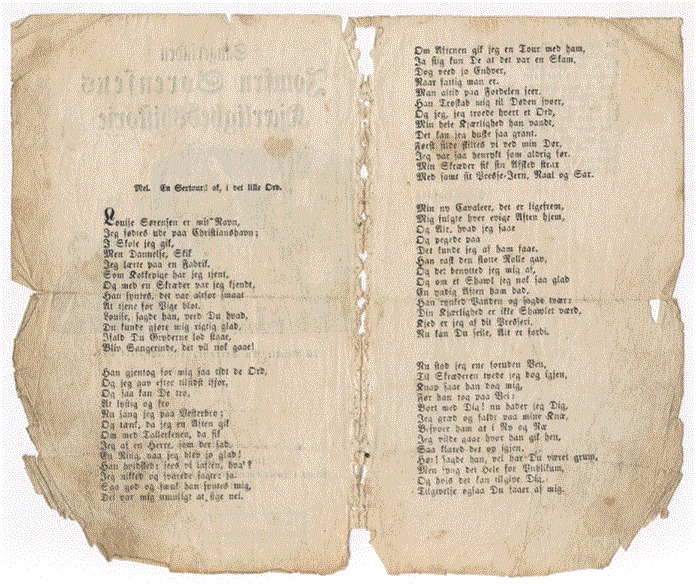 Mel. En Sextour, ak, i det lille Ord.
Louise Sørensen er mit Navn,
Jeg fødtes ude paa Christianshavn;
I Skole jeg gik,
Men Dannelse, Skik
Jeg lærte paa en Fabrik.
Som Kokkepige har jeg tjent,
Og med en Skræder var jeg kjendt,
Han syntes, det var altfor smaat
At tjene for Pige blot.
Louise, sagde han, veed Du hvad,
Du kunde gjøre mig rigtig glad,
Ifald Du Gryderne lod staae,
Bliv Sangerinde, det vil nok gaae!
Han gjentog for mig saa tidt de Ord,
Og jeg gav efter tilsidst ifjor,
Og saa kan De tro,
At lystig og fro
Nu sang jeg paa Vesterbro;
Og tænk, da jeg en Aften gik
Om med Tallerkenen, da fik
Jeg af en Herre, som der sad,
En Ring, naa jeg blev jo glad!
Han hvidsked: sees vi iaften, hva'?
Jeg nikked og svarede sagte: ja.
Saa god og smuk han syntes mig,
Det var mig umuligt at sige nei.
Om Aftenen gik jeg en Tour med ham,
Ja slig kun De at det var en Skam,
Dog veed jo Enhver,
Naar fattig man er.
Man altid paa Fordelen seer.
Han Troskab mig til Døden svor,
Og jeg, jeg troede hvert et Ord,
Min hele Kjærlighed han vandt,
Det kan jeg huske saa grant.
Først silde skiltes vi ved min Dør,
Jeg var saa henrykt som aldrig før.
Min Skræder fik sin Afsked strax
Med samt sit Presse-Jern, Naal og Sax.
Min ny Cavaleer, det er ligefrem,
Mig fulgte hver evige Aften hjem,
Og Alt, hvad jeg saae
Og pegede paa
Det kunde jeg af ham faae.
Han rast den flotte Rolle gav,
Og det benytted jeg mig af,
Og om et Shawl jeg nok saa glad
En yndig Aften ham bad,
Han rynked Panden og sagde tvær:
Din Kjærlighed er ikke Shawlet værd,
Kjed er jeg af dit Presseri.
Nu kan Du seile, Alt er forbi.
Nu stod jeg ene foruden Ven,
Til Skræderen tyede jeg dog igjen,
Knap saae han dog mig,
Før han raabte Vei:
Bort med Dig! nu hader jeg Dig.
Jeg græd og faldt paa mine Knæ,
Besvoer ham at i Ny og Næ
Jeg vilde gaae hvor han gik hen,
Saa klared det op igjen,
Hør! sagde han, vel har Du været grum,
Men syng det Hele for Publikum,
Og hvis det kan tilgive Dig,
Tilgivelse ogsaa Du faaer af mig.